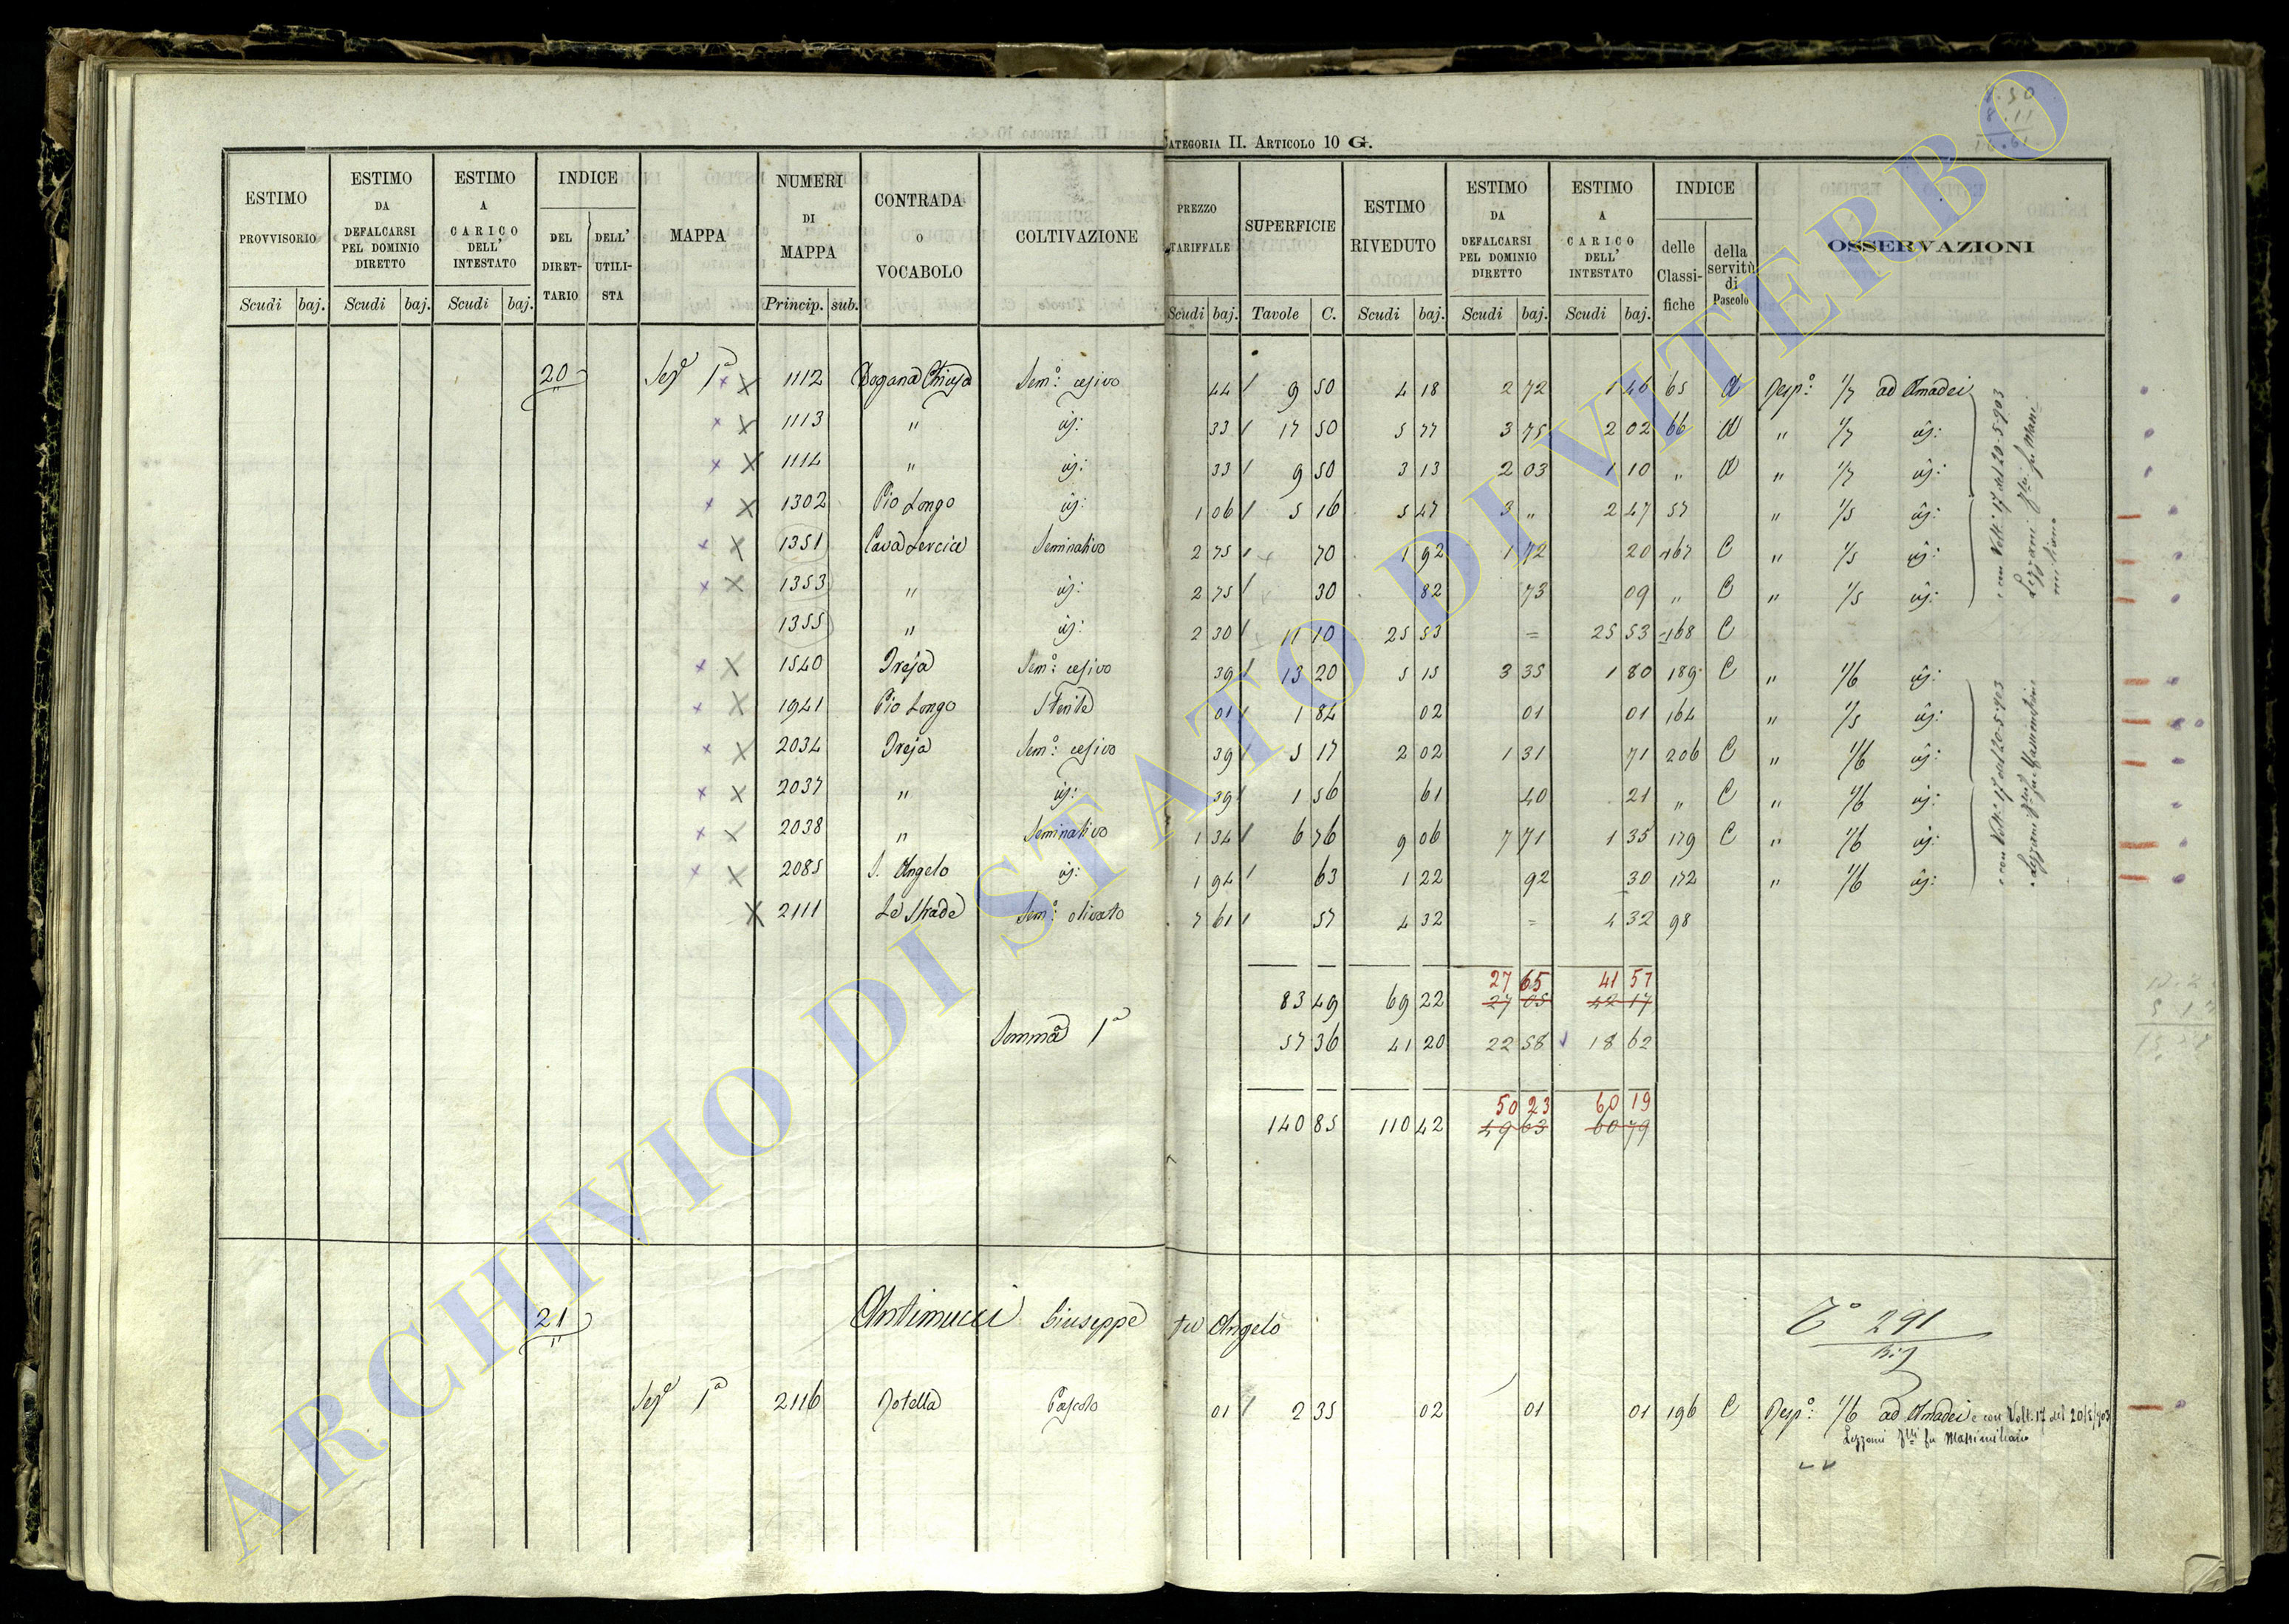 CATEGORIA II. ARTICOLO 10 G.
ESTIMO PROVVISORIO Scudi baj.
ESTIMO DA DEFALCARSI PEL DOMINIO DIRETTO Scudi baj.
ESTIMO A CARICO DELL' INTESTATO Scudi baj.
INDICE DEL DIRET-TARIO DELL' UTILI-STA
MAPPA
NUMERI DI MAPPA Princip. sub.
CONTRADA O VOCABOLO
COLTIVAZIONE
PREZZO TARIFFALE Scudi baj.
SUPERFICIE Tavole C.
ESTIMO RIVEDUTO Scudi baj.
ESTIMO DA DEFALCARSI PEL DOMINIO DIRETTO Scudi baj.
ESTIMO A CARICO DELL' INTESTATO Scudi baj.
INDICE delle Classi-fiche della servitù di Pascolo
OSSERVAZIONI
20 Sez.e 1a X 1112 Dogana Chiusa Sem.o cesivo 44 9 50 4 18 2 72 1 46 65 A Resp.o 1/7 ad Amadei
X 1113 " id: 33 17 50 5 77 3 75 2 02 66 A " 1/7 id:
X 1114 " id: 33 9 50 3 13 2 03 1 10 " A " 1/7 id:
X 1302 Pio Longo id: 1 06 5 16 5 47 3 " 2 47 57 " 1/5 id:
X 1351 Cava Lercia Seminativo 2 75 70 1 92 1 72 20 167 C " 1/5 id:
X 1353 " id: 2 75 30 82 73 09 " C " 1/5 id:
1355 " id: 2 30 11 10 25 53 = 25 53 168 C
X 1540 Treja Sem.o cesivo 39 13 20 5 15 3 35 1 80 189 C " 1/6 id:
X 1941 Pio Longo Sterile 01 1 84 02 01 01 164 " 1/5 id:
X 2034 Treja Sem.o cesivo 39 5 17 2 02 1 31 71 206 C " 1/6 id:
X 2037 " id: 39 1 56 61 40 21 " C " 1/6 id:
X 2038 " Seminativo 1 34 6 76 9 06 7 71 1 35 179 C " 1/6 id:
X 2085 S. Angelo id: 1 94 63 1 22 92 30 172 " 1/6 id:
X 2111 Le Strade Sem.o olivato 7 61 57 4 32 = 4 32 98
e con Volt. 17 del 20-5-903
Lezzani F.lli fu Massi
miliano
e con Volt. 17 del 20-5-903
Lezzani F.lli fu Massimiliano
27 65 41 57
83 49 69 22 27 05 42 17
Somma 1a 57 36 41 20 22 58 18 62
50 23 60 19
140 85 110 42 49 63 60 79
21 Antimucci Giuseppe fu Angelo
291
Sez.e 1a 2116 Rotella Pascolo 01 2 35 02 01 01 196 C Resp.o 1/6 ad Amadei e con Volt. 17 del 20/5/903
Lezzani F.lli fu Massimiliano
ARCHIVIO DI STATO DI VITERBO